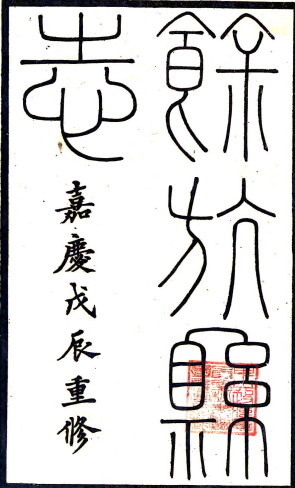 餘斻縣
志
嘉慶戊辰重修